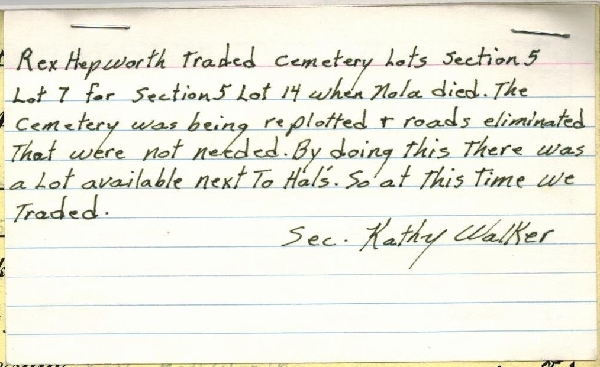 Rex Hepworth traded Cemetery Lots Section 5
Lot 7 for Section 5 Lot 14 when Nola died. The
Cemetery was being replotted + roads eliminated
That were not needed. By doing this There was
a Lot available next To Hal's. So at This Time we
Traded.
Sec. Kathy Walker